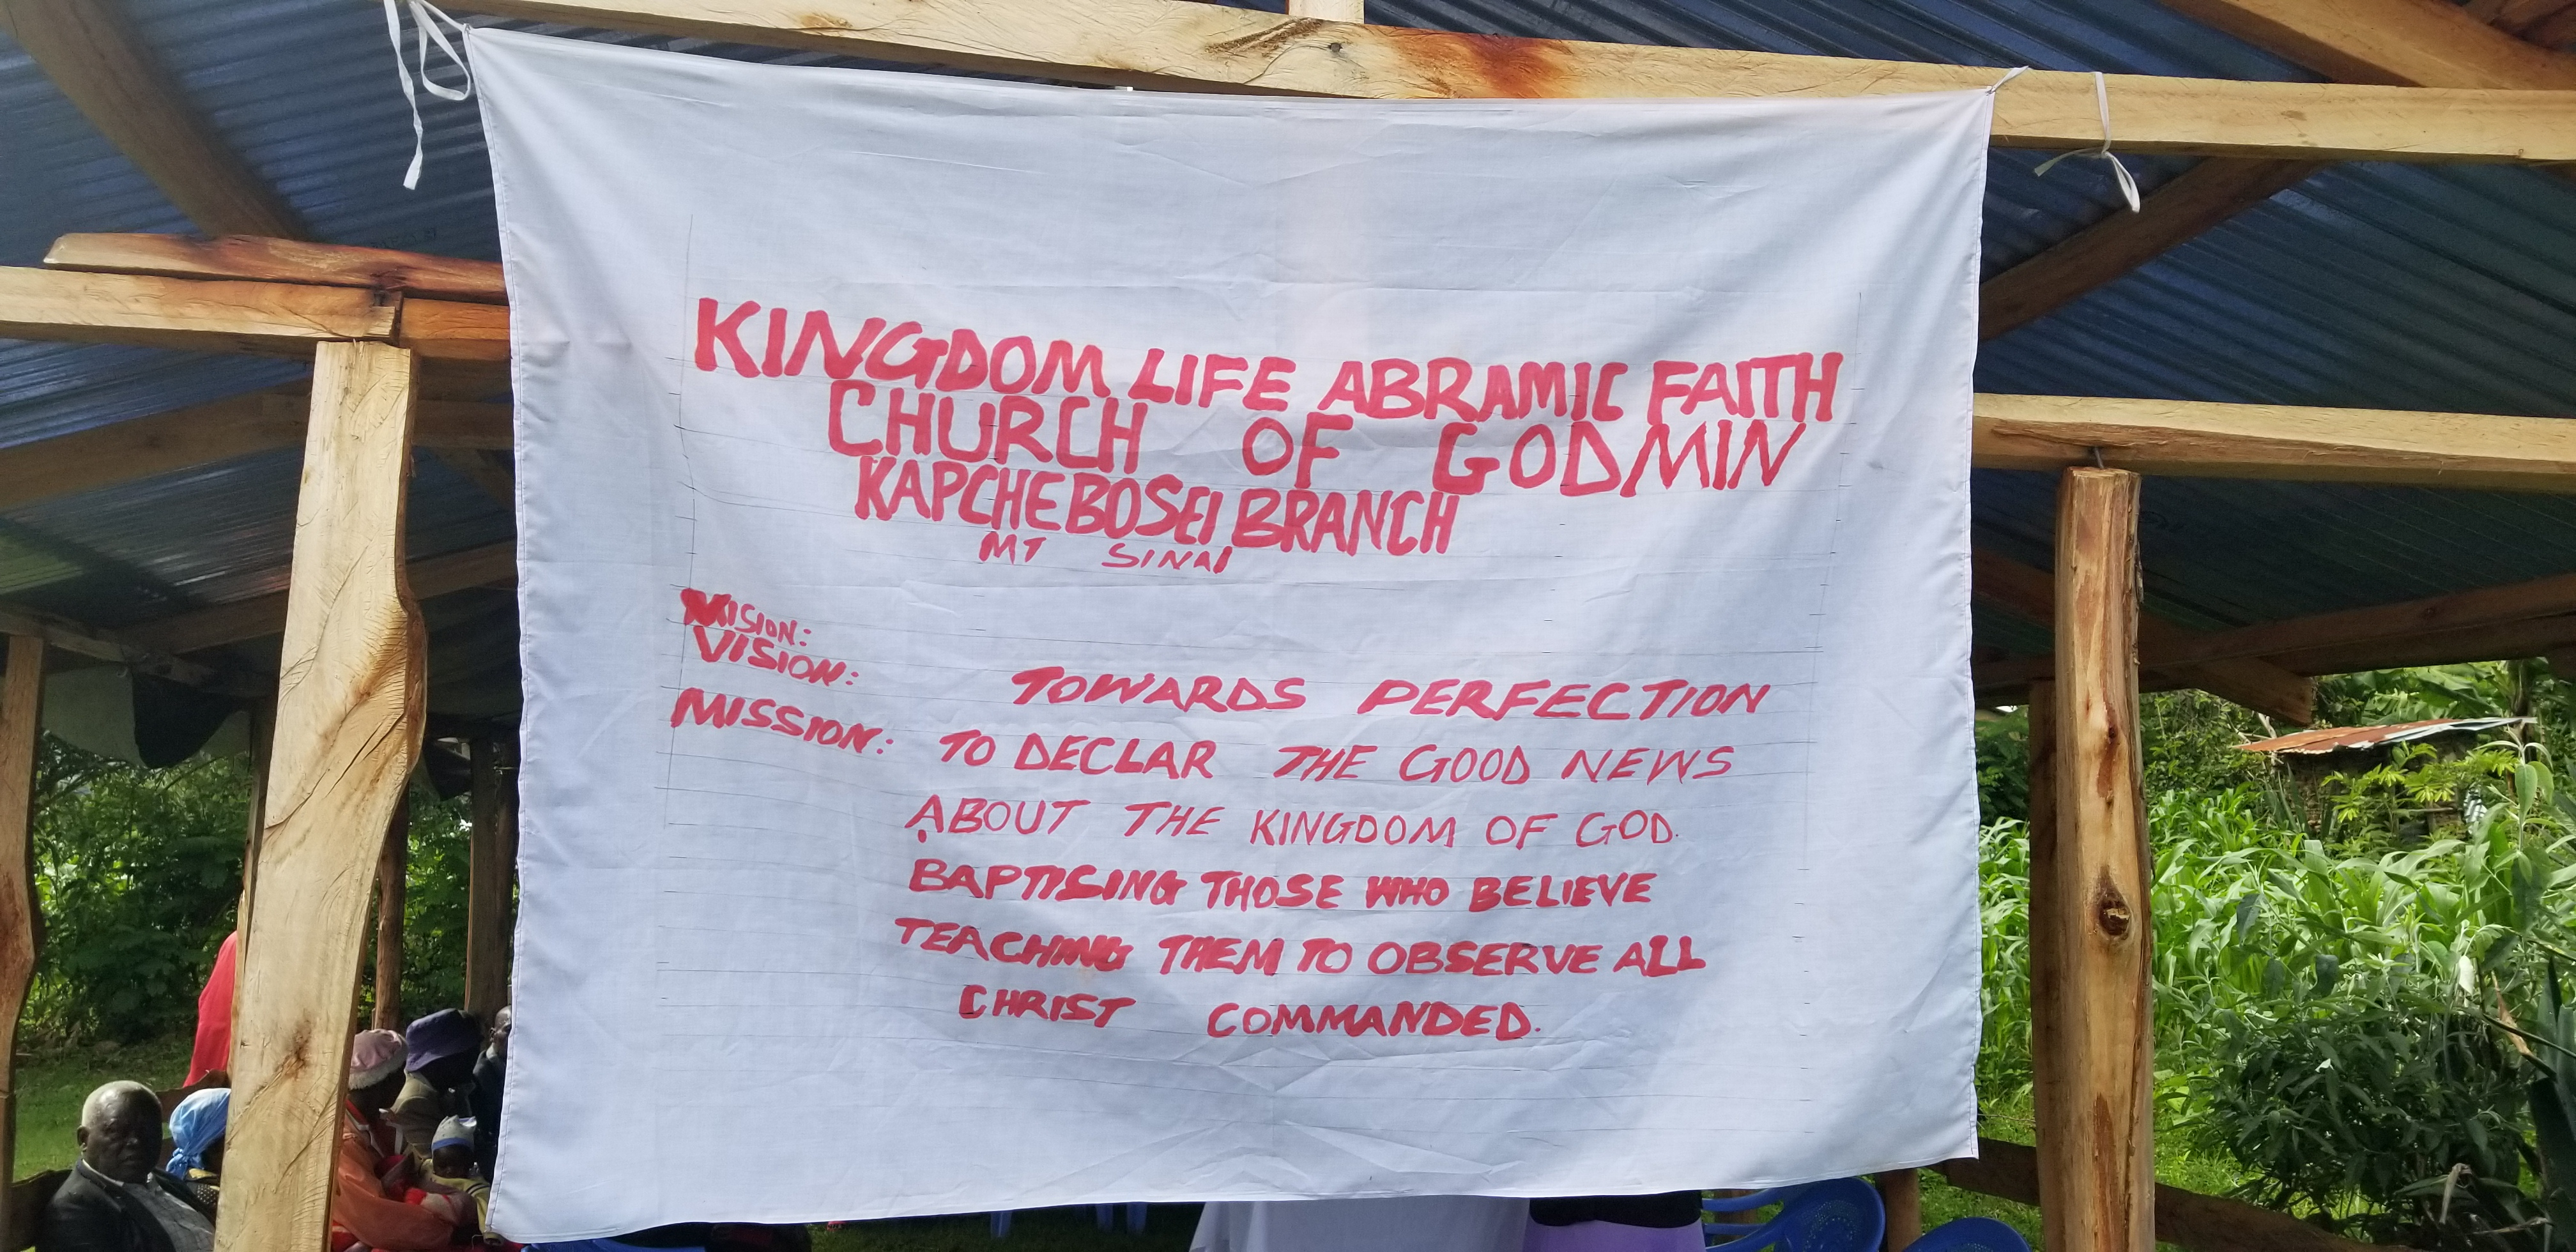 KINGDOM LIFE ABRAMIC FAITH
CHURCH OF GODMIN
KAPCHEBOSEI BRANCH
MT SINAI
VISION:
VISION: TOWARDS PERFECTION
MISSION: TO DECLAR THE GOOD NEWS
ABOUT THE KINGDOM OF GOD.
BAPTISING THOSE WHO BELIEVE
TEACHING THEM TO OBSERVE ALL
CHRIST COMMANDED.